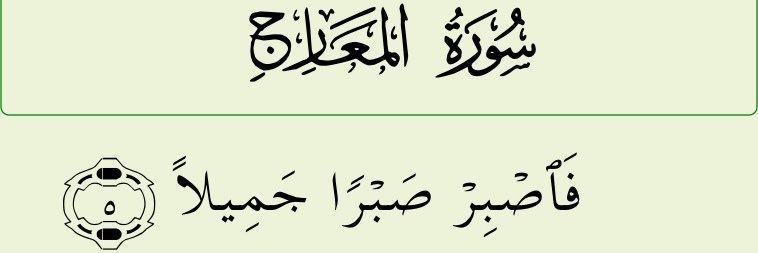 سُورَةُ المَعَارِجِ
فَٱصْبِرْ صَبْرًا جَمِيلاً ٥